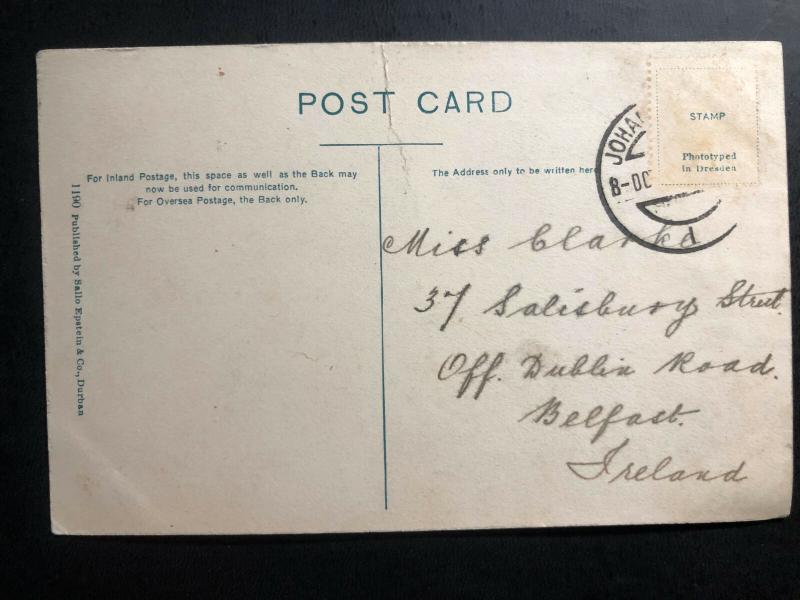 POST CARD
For Inland Postage, this space as well as the Back may
now be used for communication.
For Oversea Postage, the Back only.
The Address only to be written here
STAMP
Phototyped
in Dresden
JOHA
8-OC
1
1190 Published by Sallo Epstein & Co., Durban
Miss Clarke
37 Salisbury Street.
Off. Dublin Road.
Belfast.
Ireland